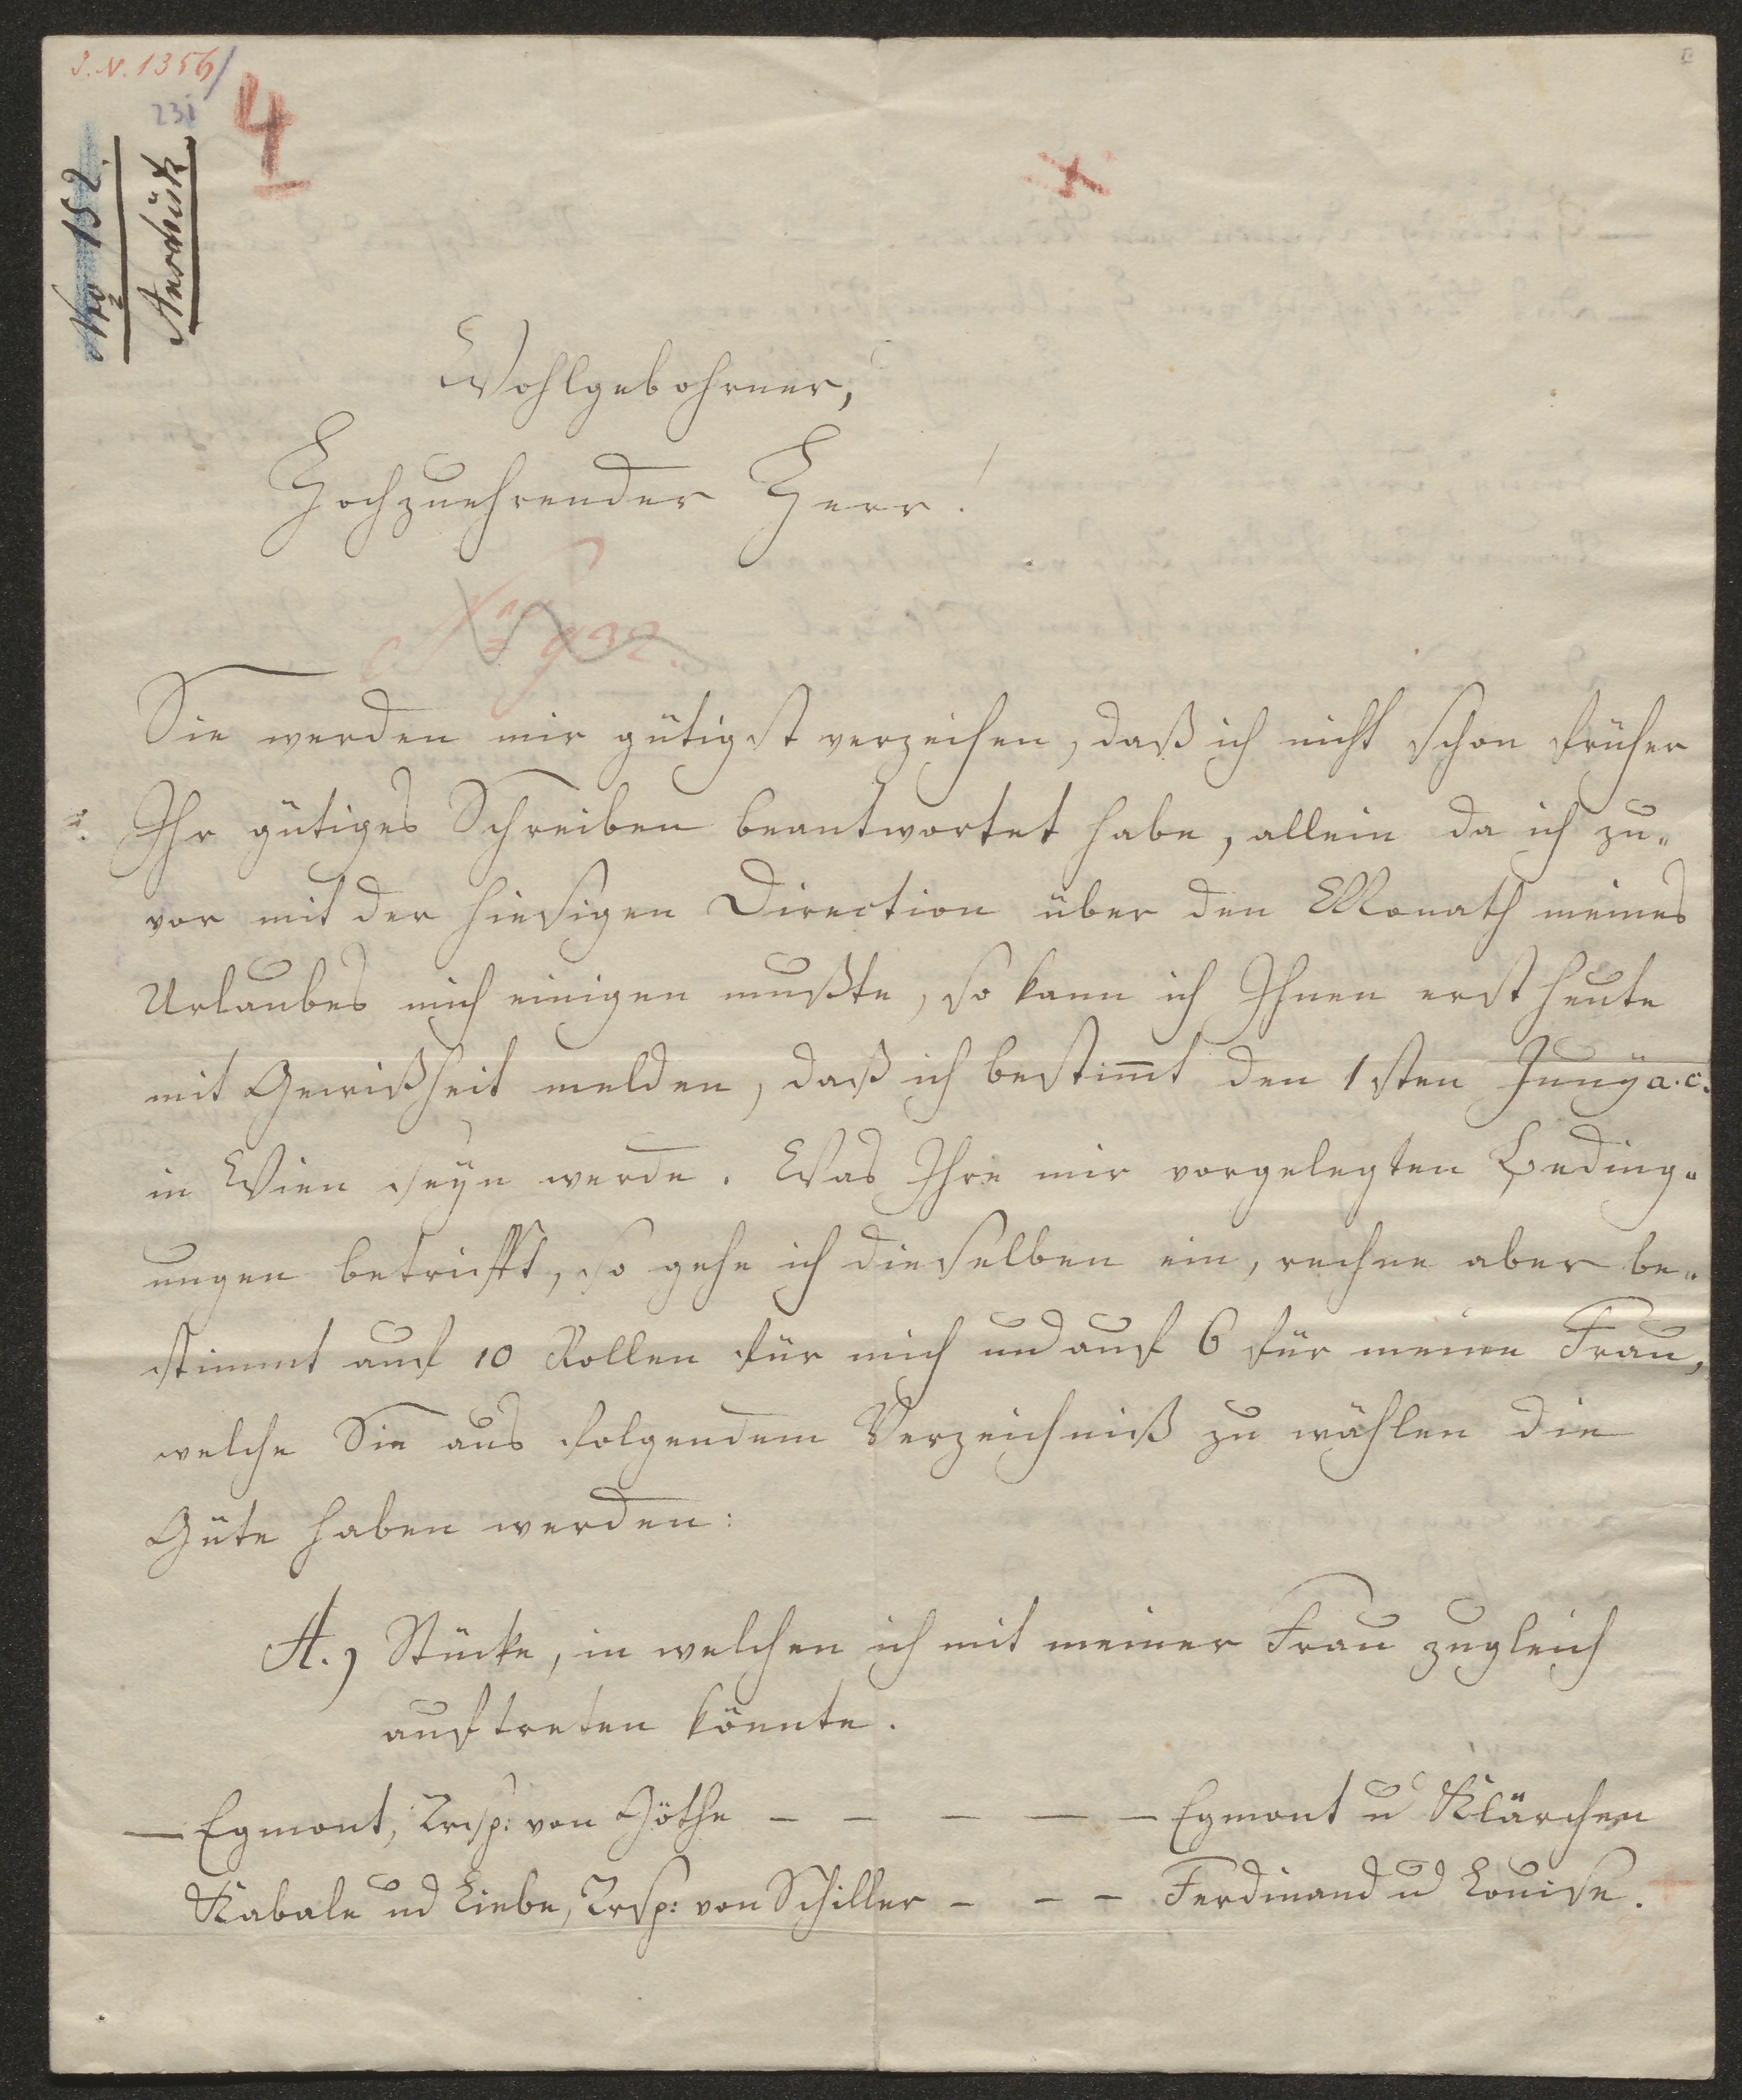 J. N. 1356/
231
4
Nro 152.
Anschütz
Wohlgebohrner,
Hochzuehrender Herr!
Sie werden mir gütigst verzeihen, daß ich nicht schon früher
Ihr gütiges Schreiben beantwortet habe, allein da ich zu„
vor mit der hiesigen Direction über den Monath meines
Urlaubes mich einigen mußte, so kann ich Ihnen erst heute
mit Gewißheit melden, daß ich bestim̅t den 1sten Juny a. c.
in Wien seyn werde. Was Ihre mir vorgelegten Beding„
ungen betrifft, so gehe ich dieselben ein, rechne aber be„
stimmt auf 10 Rollen für mich und auf 6 für meine Frau,
welche Sie aus folgendem Verzeichniß zu wählen die
Güte haben werden:
A.) Stücke, in welchen ich mit meiner Frau zugleich
auftreten könnte.
— Egmont, Trsp: von Göthe — — — — — Egmont u Klärchen
Kabale und Liebe, Trsp: von Schiller — — — Ferdinand u Louise.